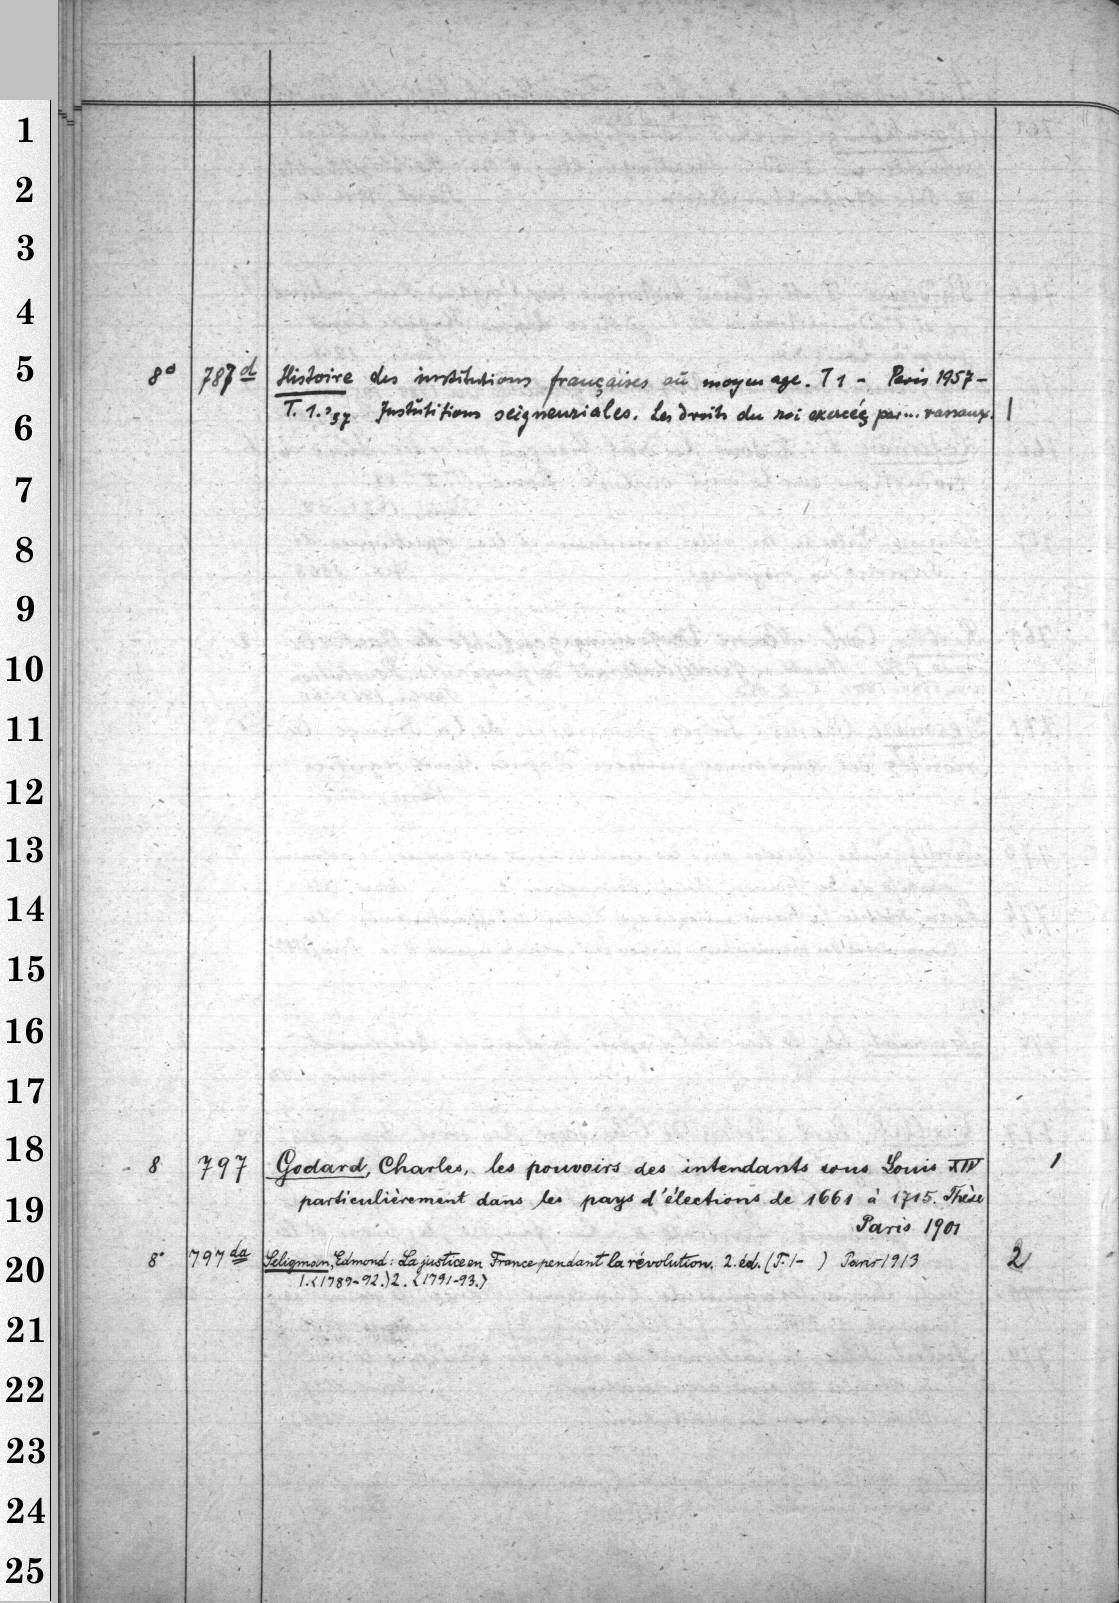 1
2
3
4
5
8° 787 d Histoire des institutions françaises au moyen age. T 1 - Paris 1957-
6
T. 1. '57 Institutions seigneuriales. Les droits du roi exercés par... vassaux. 1
7
8
9
10
11
12
13
14
15
16
17
18
8 797 Godard, Charles, les pouvoirs des intendants sous Louis XIV 1
19
particulièrement dans les pays d'élections de 1661 à 1715. Thèse
Paris 1901
20
8° 797 da Seligman, Edmond: La justice en France pendant la révolution. 2. éd. (T. 1- ) Paris 1913 2
1. <1789-92.> 2. <1791-93.>
21
22
23
24
25